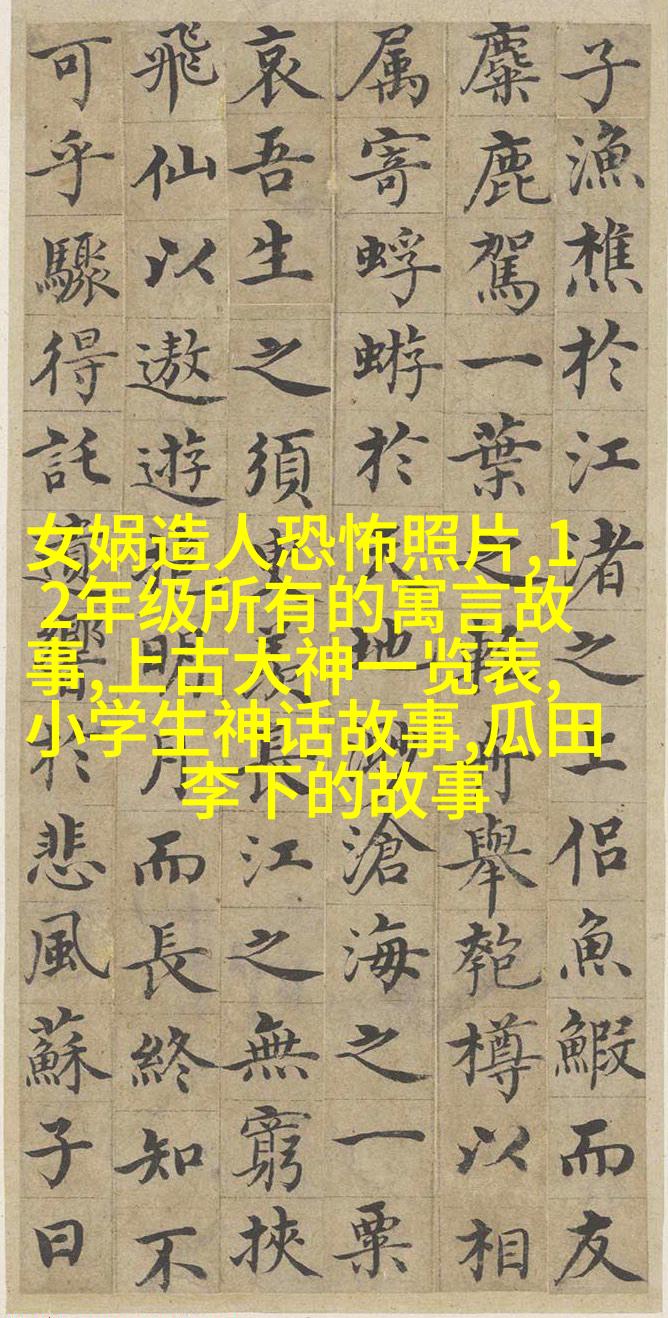 子漁樵於江渚之上侶魚鰕而友
麋鹿駕一葉之舟舉匏樽以相
属寄蜉蝣於天地渺滄海之一粟
哀吾生之須臾羨長江之無窮挾
飛仙以遨遊抱明月而長終知不
可乎驟得託遺響於悲風蘇子曰
女娲造人恐怖照片,1
2年级所有的寓言故
事,上古大神一览表,
小学生神话故事,瓜田
李下的故事